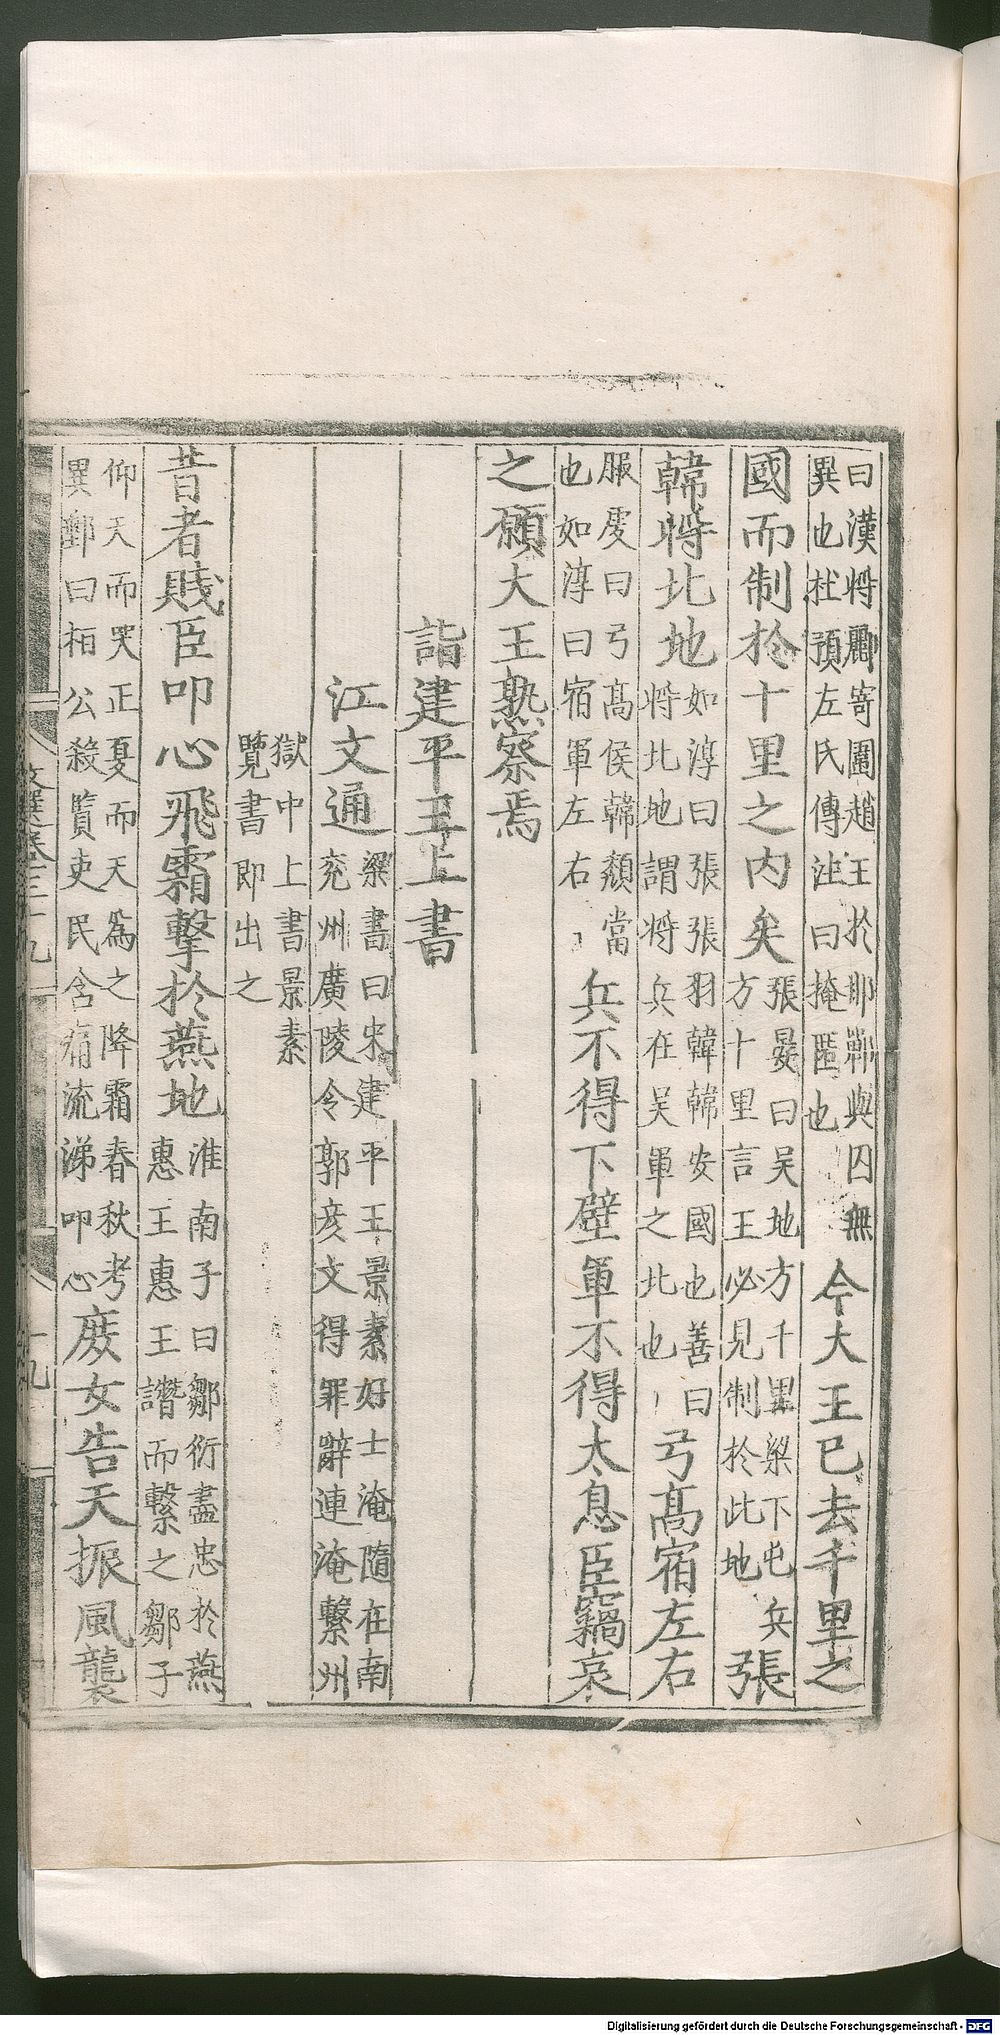 曰漢將酈寄圍趙王於邯鄲與囚無
異也杜預左氏傳注曰掩匿也
今大王已去千里之
國而制於十里之內矣
張晏曰吳地方千里梁下屯兵
方十里言王必見制於此地
張
韓將北地
如淳曰張張羽韓韓安國也善曰
將北地謂將兵在吳軍之北也
弓髙宿左右
服虔曰弓髙侯韓頹當
也如淳曰宿軍左右
兵不得下壁軍不得太息臣竊哀
之願大王熟察焉
詣建平王上書
江文通
梁書曰宋建平王景素好士淹隨在南
兖州廣陵令郭彥文得罪辭連淹繫州
獄中上書景素
覽書即出之
昔者賤臣叩心飛霜擊於燕地
淮南子曰鄒衍盡忠於燕
惠王惠王譖而繫之鄒子
仰天而哭正夏而天為之降霜春秋考
異郵曰桓公殺賢吏民含痛流涕叩心
庶女告天振風襲
文選卷三十九
十九
Digitalisierung gefördert durch die Deutsche Forschungsgemeinschaft - DFG